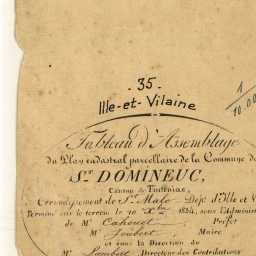 - 35 -
Ille-et-Vilaine
1
10.00
Tableau d'Assemblage
du Plan cadastral parcellaire de la Commune de
St. DOMINEUC,
Canton de Tinténiac,
Arrondissement de St. Malo Dépt. d'Ille et V
Terminé sur le terrain le 30 Xbre 1834, sous l'Administra
de Mr. Cahouet Préfet
Mr. Joubert Maire
et sous la Direction de
Mr. Lambert Directeur des Contributions